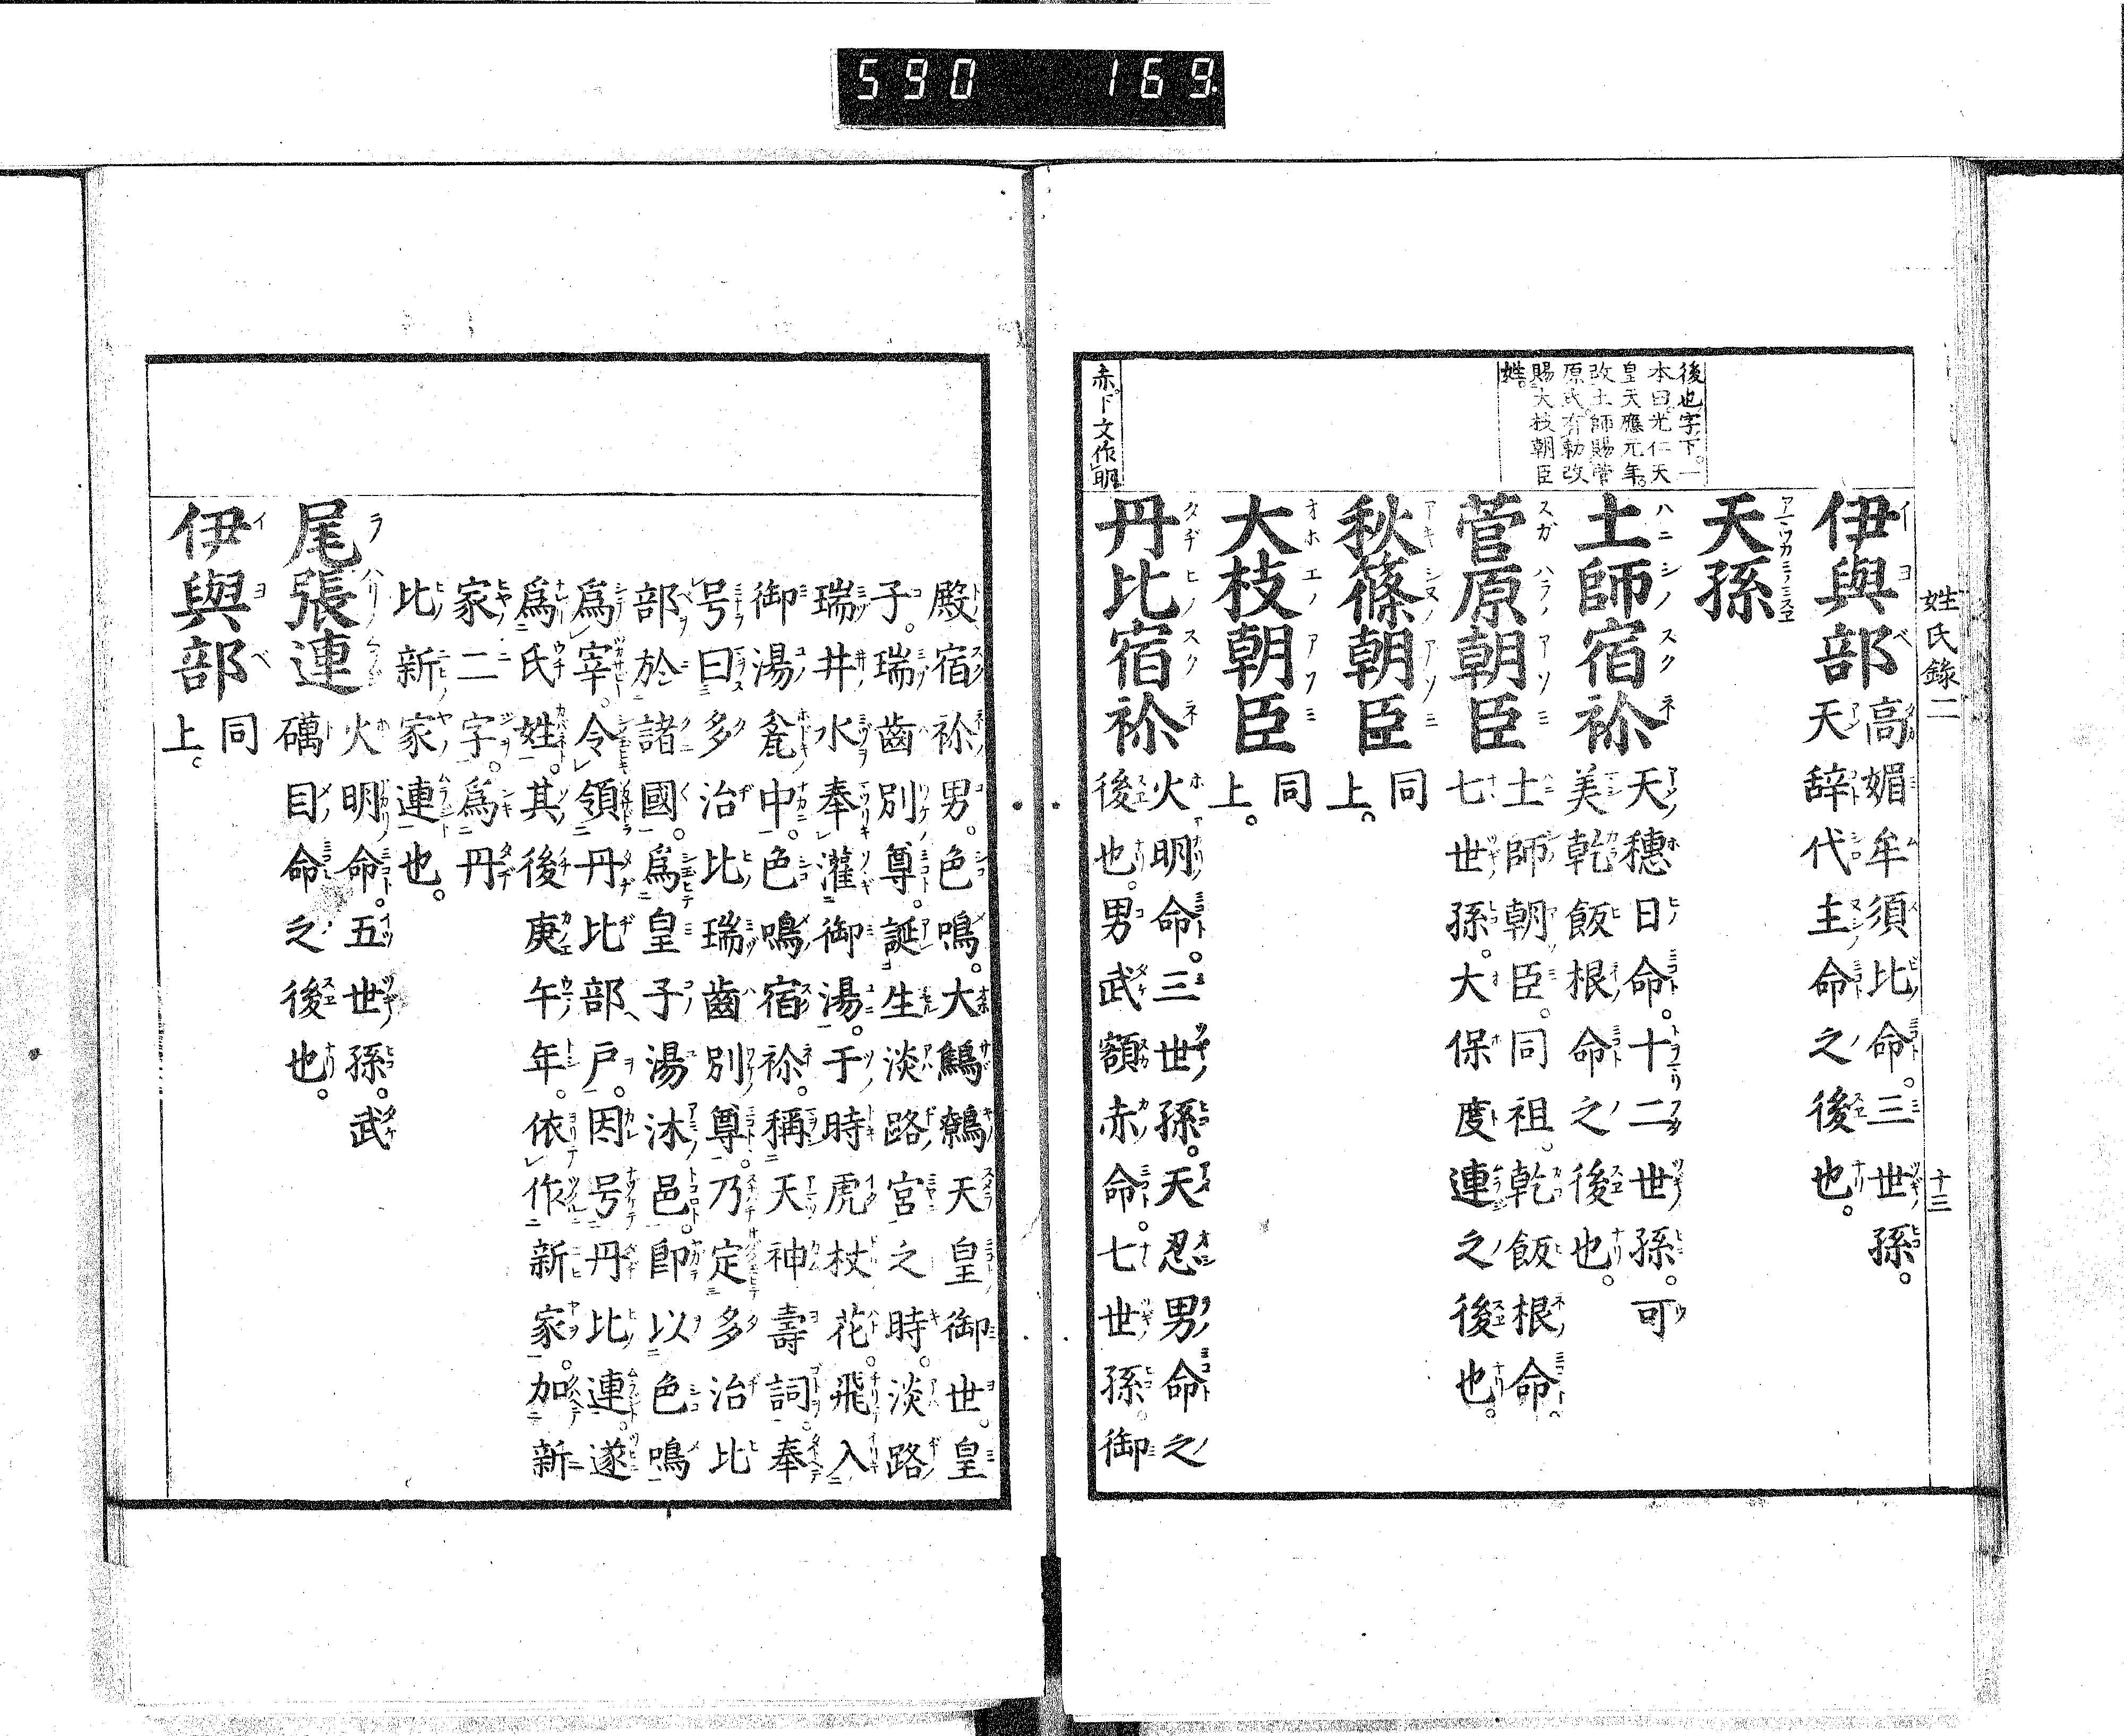 590 169
姓氏錄二 十三
伊與部 高媚牟須比命。三世孫。
天辞代主命之後也。
天孫
土師宿祢 天穗日命。十二世孫。可
美乾飯根命之後也。
菅原朝臣 土師朝臣。同祖。乾飯根命。
七世孫。大保度連之後也。
秋篠朝臣 同
上。
大枝朝臣 同
上。
丹比宿祢 火明命。三世孫。天忍男命之
後也。男武額赤命。七世孫。御
後也字下。一
本曰光仁天
皇天應元年。
改土師賜菅
原氏。有勅改
賜大枝朝臣
姓。
赤。下文作明。
殿宿祢男。色鳴。大鷦鷯天皇御世。皇
子。瑞齒別尊。誕生淡路宮之時。淡路
瑞井水奉灌御湯。于時虎杖花。飛入
御湯瓮中。色鳴宿祢。稱天神壽詞。奉
号曰多治比瑞齒別尊。乃定多治比
部於諸國。爲皇子湯沐邑。即以色鳴
爲宰。令領丹比部戸。因号丹比連。遂
爲氏姓。其後庚午年。依作新家。加新
家二字。爲丹
比新家連也。
尾張連 火明命。五世孫。武
礪目命之後也。
伊與部 同
上。